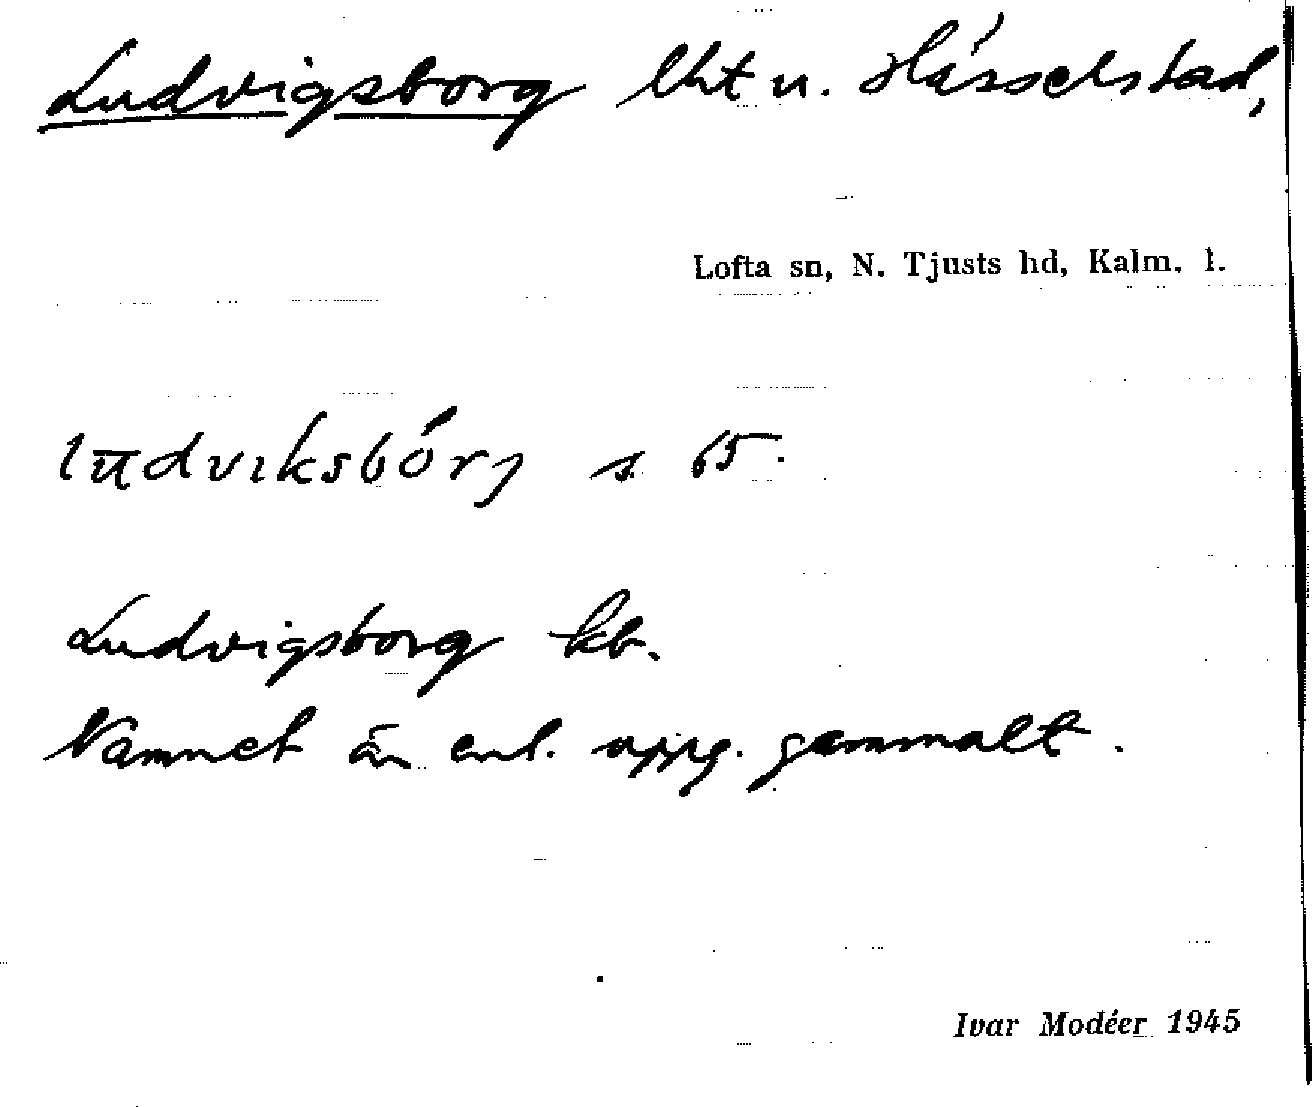 Ludvigsborg lht u. Hässelstad,
Lofta sn, N. Tjusts hd, Kalm. l.
ludviksbórj s. 65.
Ludvigsborg kb.
Namnet är enl. uppg. gammalt.
Ivar Modéer 1945